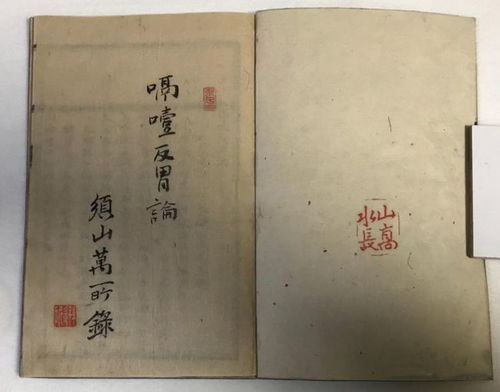 山高
水長
嗝噎反胃論
須山萬所錄